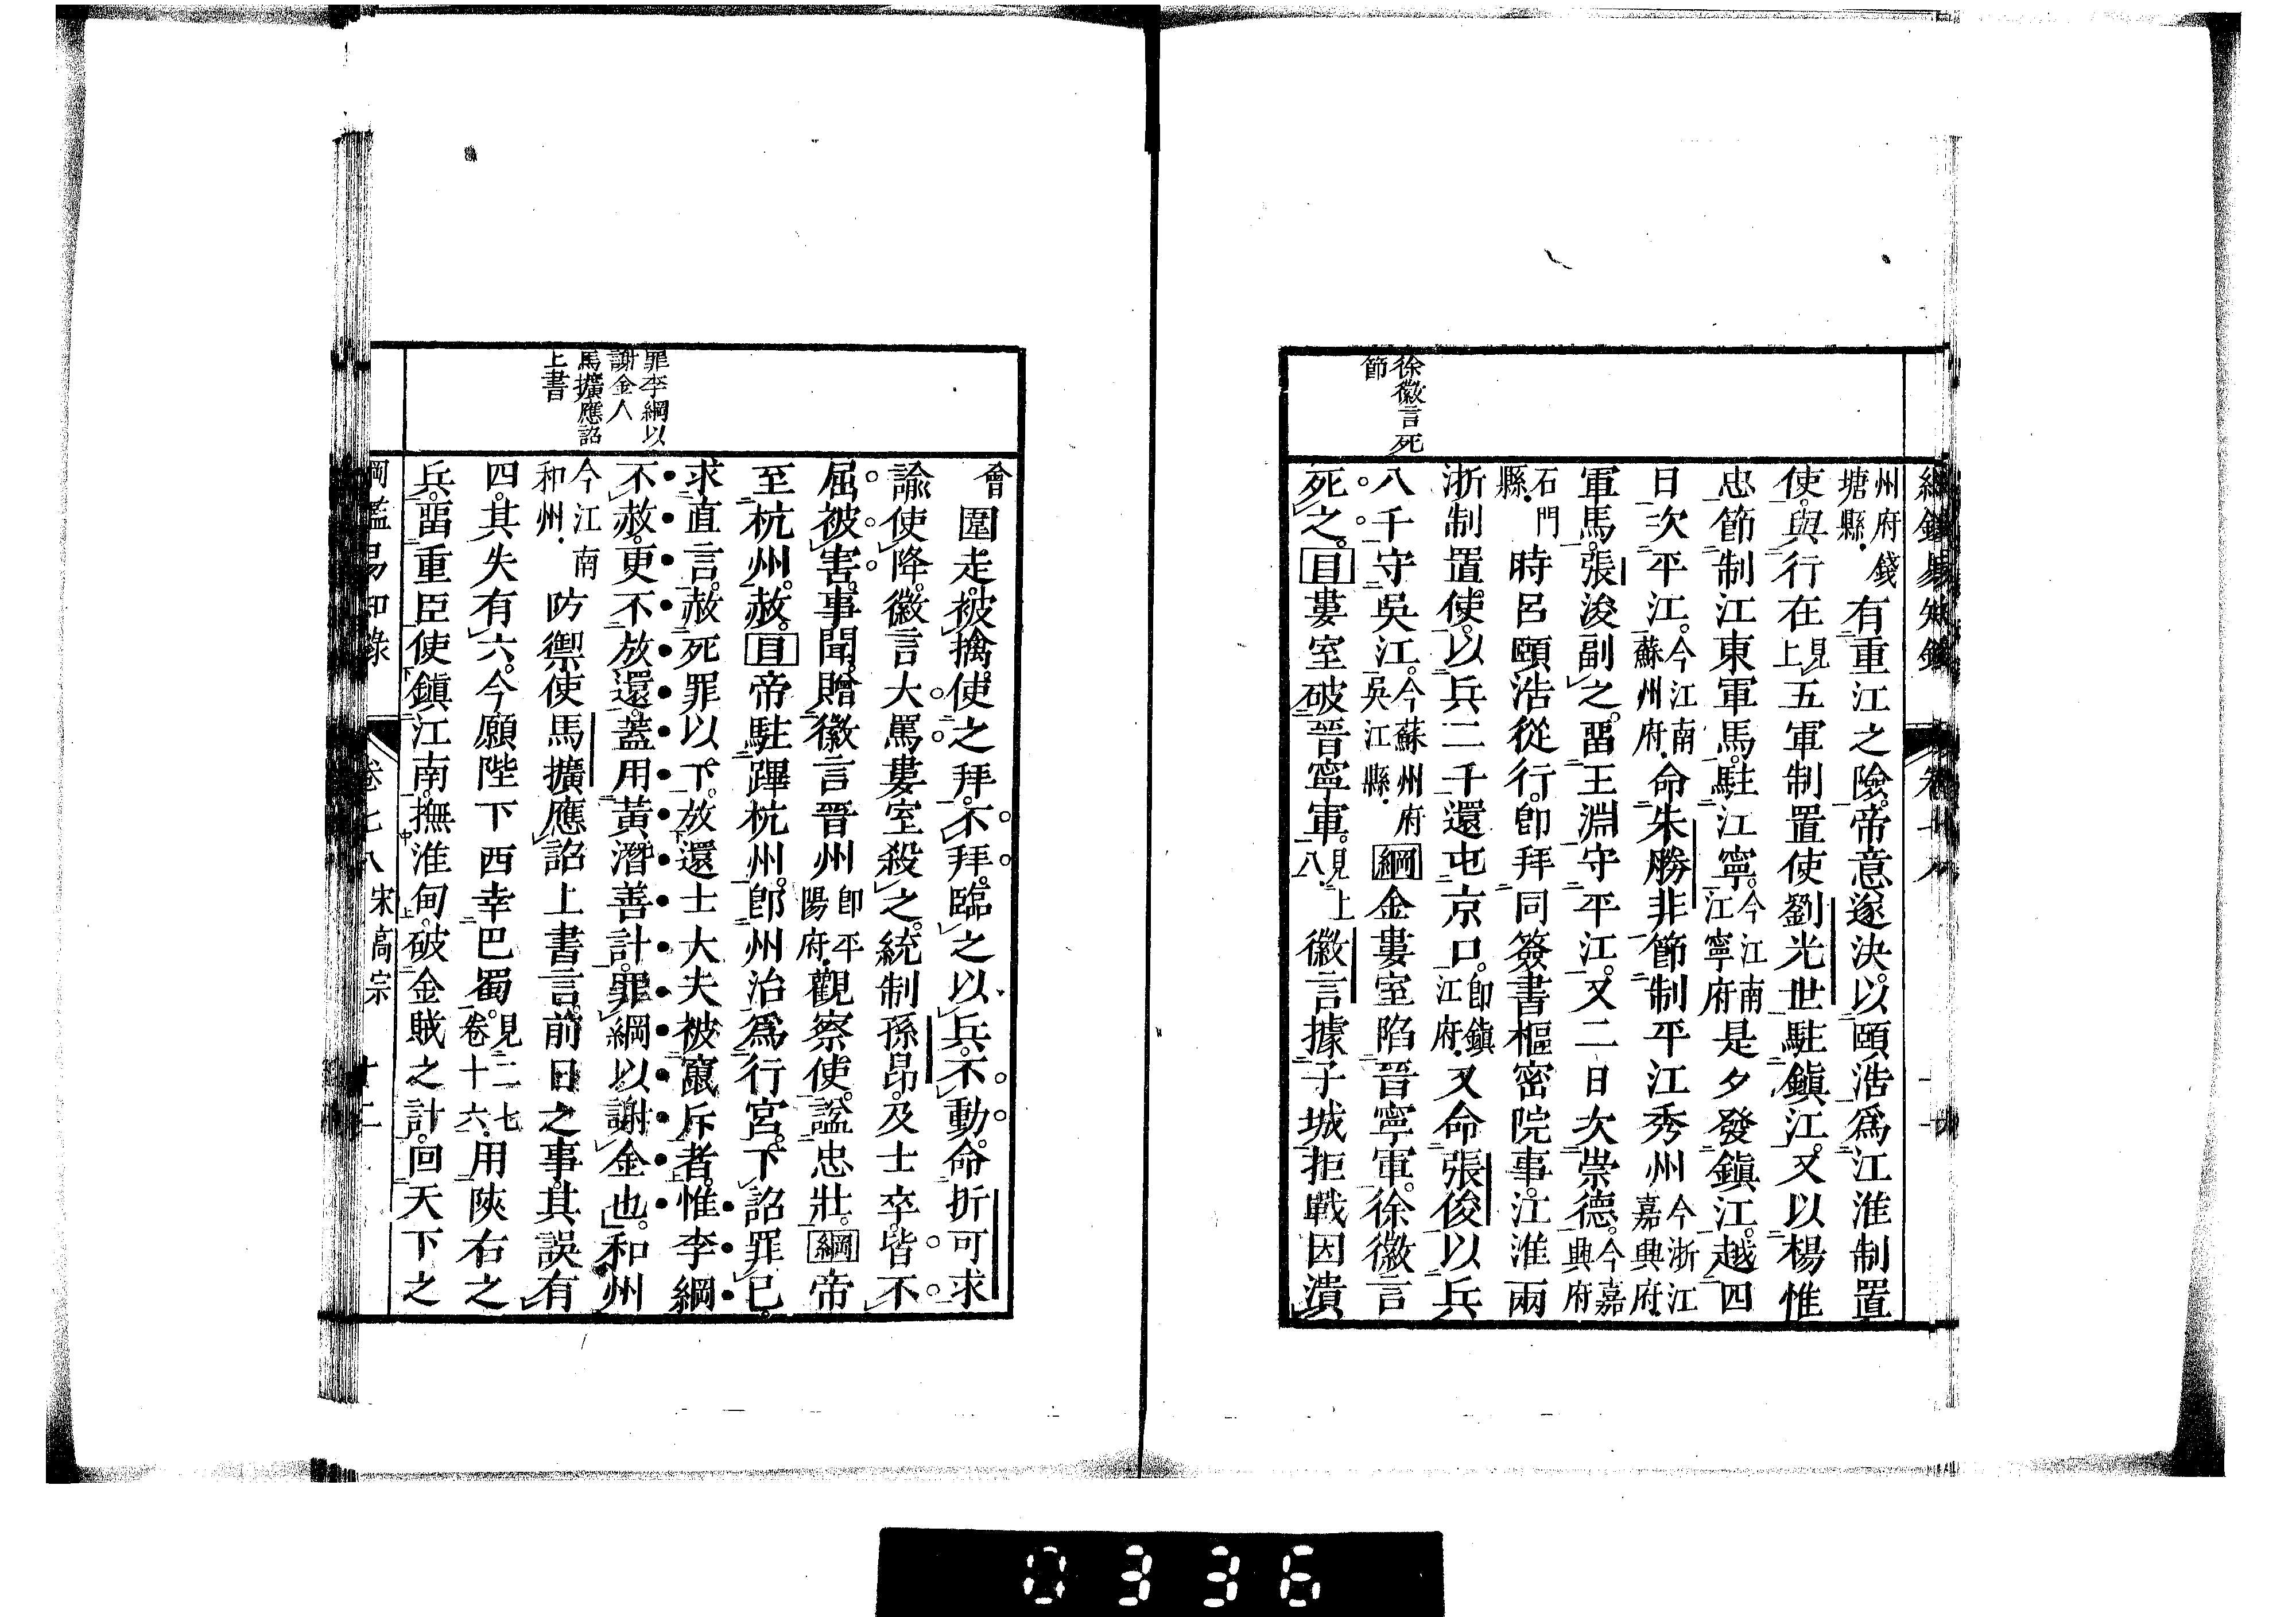 徐徽言死
節
州府錢
塘縣.
有重江之險。帝意遂決。以頤浩爲江淮制置
使。與行在見上五軍制置使劉光世駐鎭江。又以楊惟
忠節制江東軍馬。駐江寧。今江南江寧府是夕發鎭江。越四
日次平江。今江南蘇州府.命朱勝非節制平江秀州今浙江嘉興府.
軍馬。張浚副之。畱王淵守平江。又二日次崇德。今嘉興府
石門縣.時呂頤浩從行。卽拜同簽書樞密院事。江淮兩
浙制置使。以兵二千還屯京口。卽鎭江府.又命張俊以兵
八千守吳江。今蘇州府吳江縣.綱金婁室陷晉寧軍。徐徽言
死之。目婁室破晉寧軍。見上八.徽言據子城拒戰因潰
罪李綱以
謝金人
馬擴應詔
上書
會圍走。被擒。使之拜。不拜。臨之以兵。不動。命折可求
諭使降。徽言大罵。婁室殺之。統制孫昻。及士卒。皆不
屈。被害。事聞。贈徽言晉州卽平陽府.觀察使。諡忠壯。綱帝
至杭州。赦。目帝駐蹕杭州。卽州治爲行宮。下詔罪已。
求直言。赦死罪以下。放還士大夫被竄斥者。惟李綱
不赦。更不放還。蓋用黃潛善計。罪綱以謝金也。和州
今江南和州.防禦使馬擴應詔上書言。前日之事。其誤有
四。其失有六。今願陛下西幸巴蜀。見二七卷十六.用陝右之
兵。畱重臣使鎭江南。撫淮甸。破金賊之計。回天下之
綱鑑易知錄 卷七八 宋高宗
0336